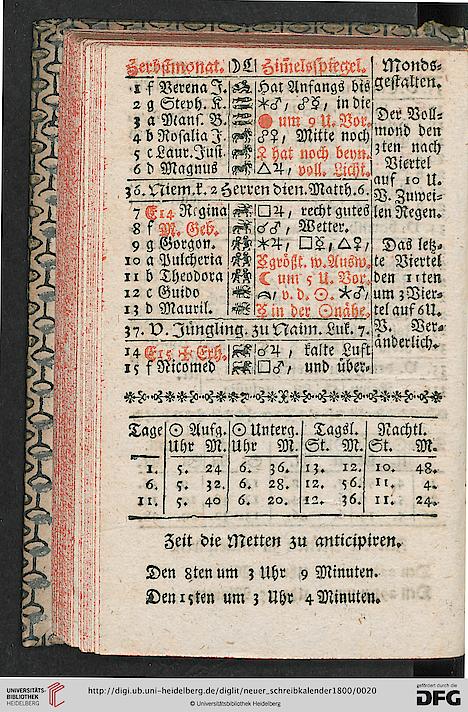 Herbstmonat. ☽☾ Himelsspiegel.
1 f Verena J. Hat Anfangs bis
2 g Steph. K. ⚹♂, ☍☿, in die
3 a Mans. B. um 9 U. Vor.
4 b Rosalia J. ☍♀, Mitte noch
5 c Laur. Just. ☿ hat noch beyn.
6 d Magnus △♃, voll. Licht.
36. Niem. k. 2 Herren dien. Matth. 6.
7 E14 Regina □♃, recht gutes
8 f M. Geb. ☌♂, Wetter.
9 g Gorgon. ⚹♃, □☿, △♀,
10 a Pulcheria ☿ größt. w. Ausw.
11 b Theodora ☾ um 5 U. Vor.
12 c Guido v. d. ☉. ⚹♂,
13 d Mauril. ☿ in der ☉nähe.
37. V. Jüngling. zu Naim. Luk. 7.
14 E15 ✠ Erh. ☌♃, kalte Luft
15 f Nicomed □♂, und über-
Monds-
gestalten.
Der Voll-
mond den
3ten nach
Viertel
auf 10 U.
V. Zuwei-
len Regen.
Das letz-
te Viertel
den 11ten
um 3 Vier-
tel auf 6 U.
V. Ver-
änderlich.
Tage ☉ Aufg. ☉ Unterg. Tagsl. Nachtl.
Uhr M. Uhr M. St. M. St. M.
1. 5. 24 6. 36. 13. 12. 10. 48.
6. 5. 32. 6. 28. 12. 56. 11. 4.
11. 5. 40 6. 20. 12. 36. 11. 24.
Zeit die Metten zu anticipiren.
Den 8ten um 3 Uhr 9 Minuten.
Den 15ten um 3 Uhr 4 Minuten.
UNIVERSITÄTS-
BIBLIOTHEK
HEIDELBERG
http://digi.ub.uni-heidelberg.de/diglit/neuer_schreibkalender1800/0020
© Universitätsbibliothek Heidelberg
gefördert durch die
DFG